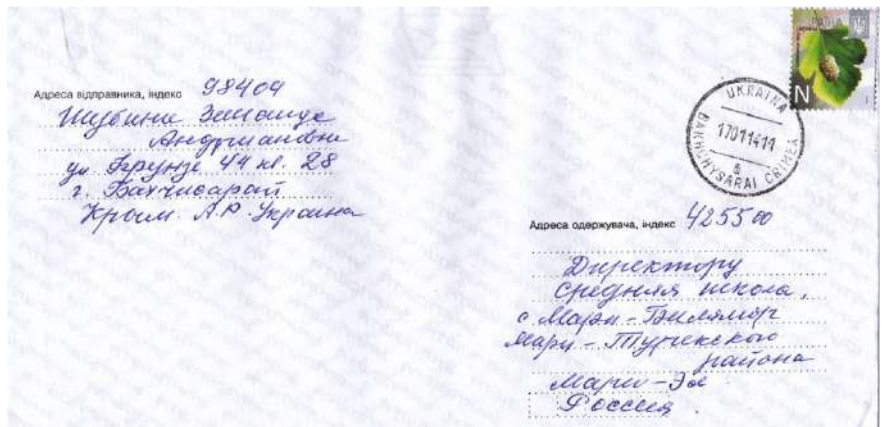 Адреса відправника, індекс 98404
Шубини
ул Фрунзе 44 кв. 28
г. Бахчисарай
Крым А.Р. Украина
UKRAINA
17011411
BAKHCHYSARAI CRIMEA
N
Адреса одержувача, індекс 425500
Директору
Средняя школа,
с Мари-Билямор
Мари-Турекского
района
Мари-Эл
Россия